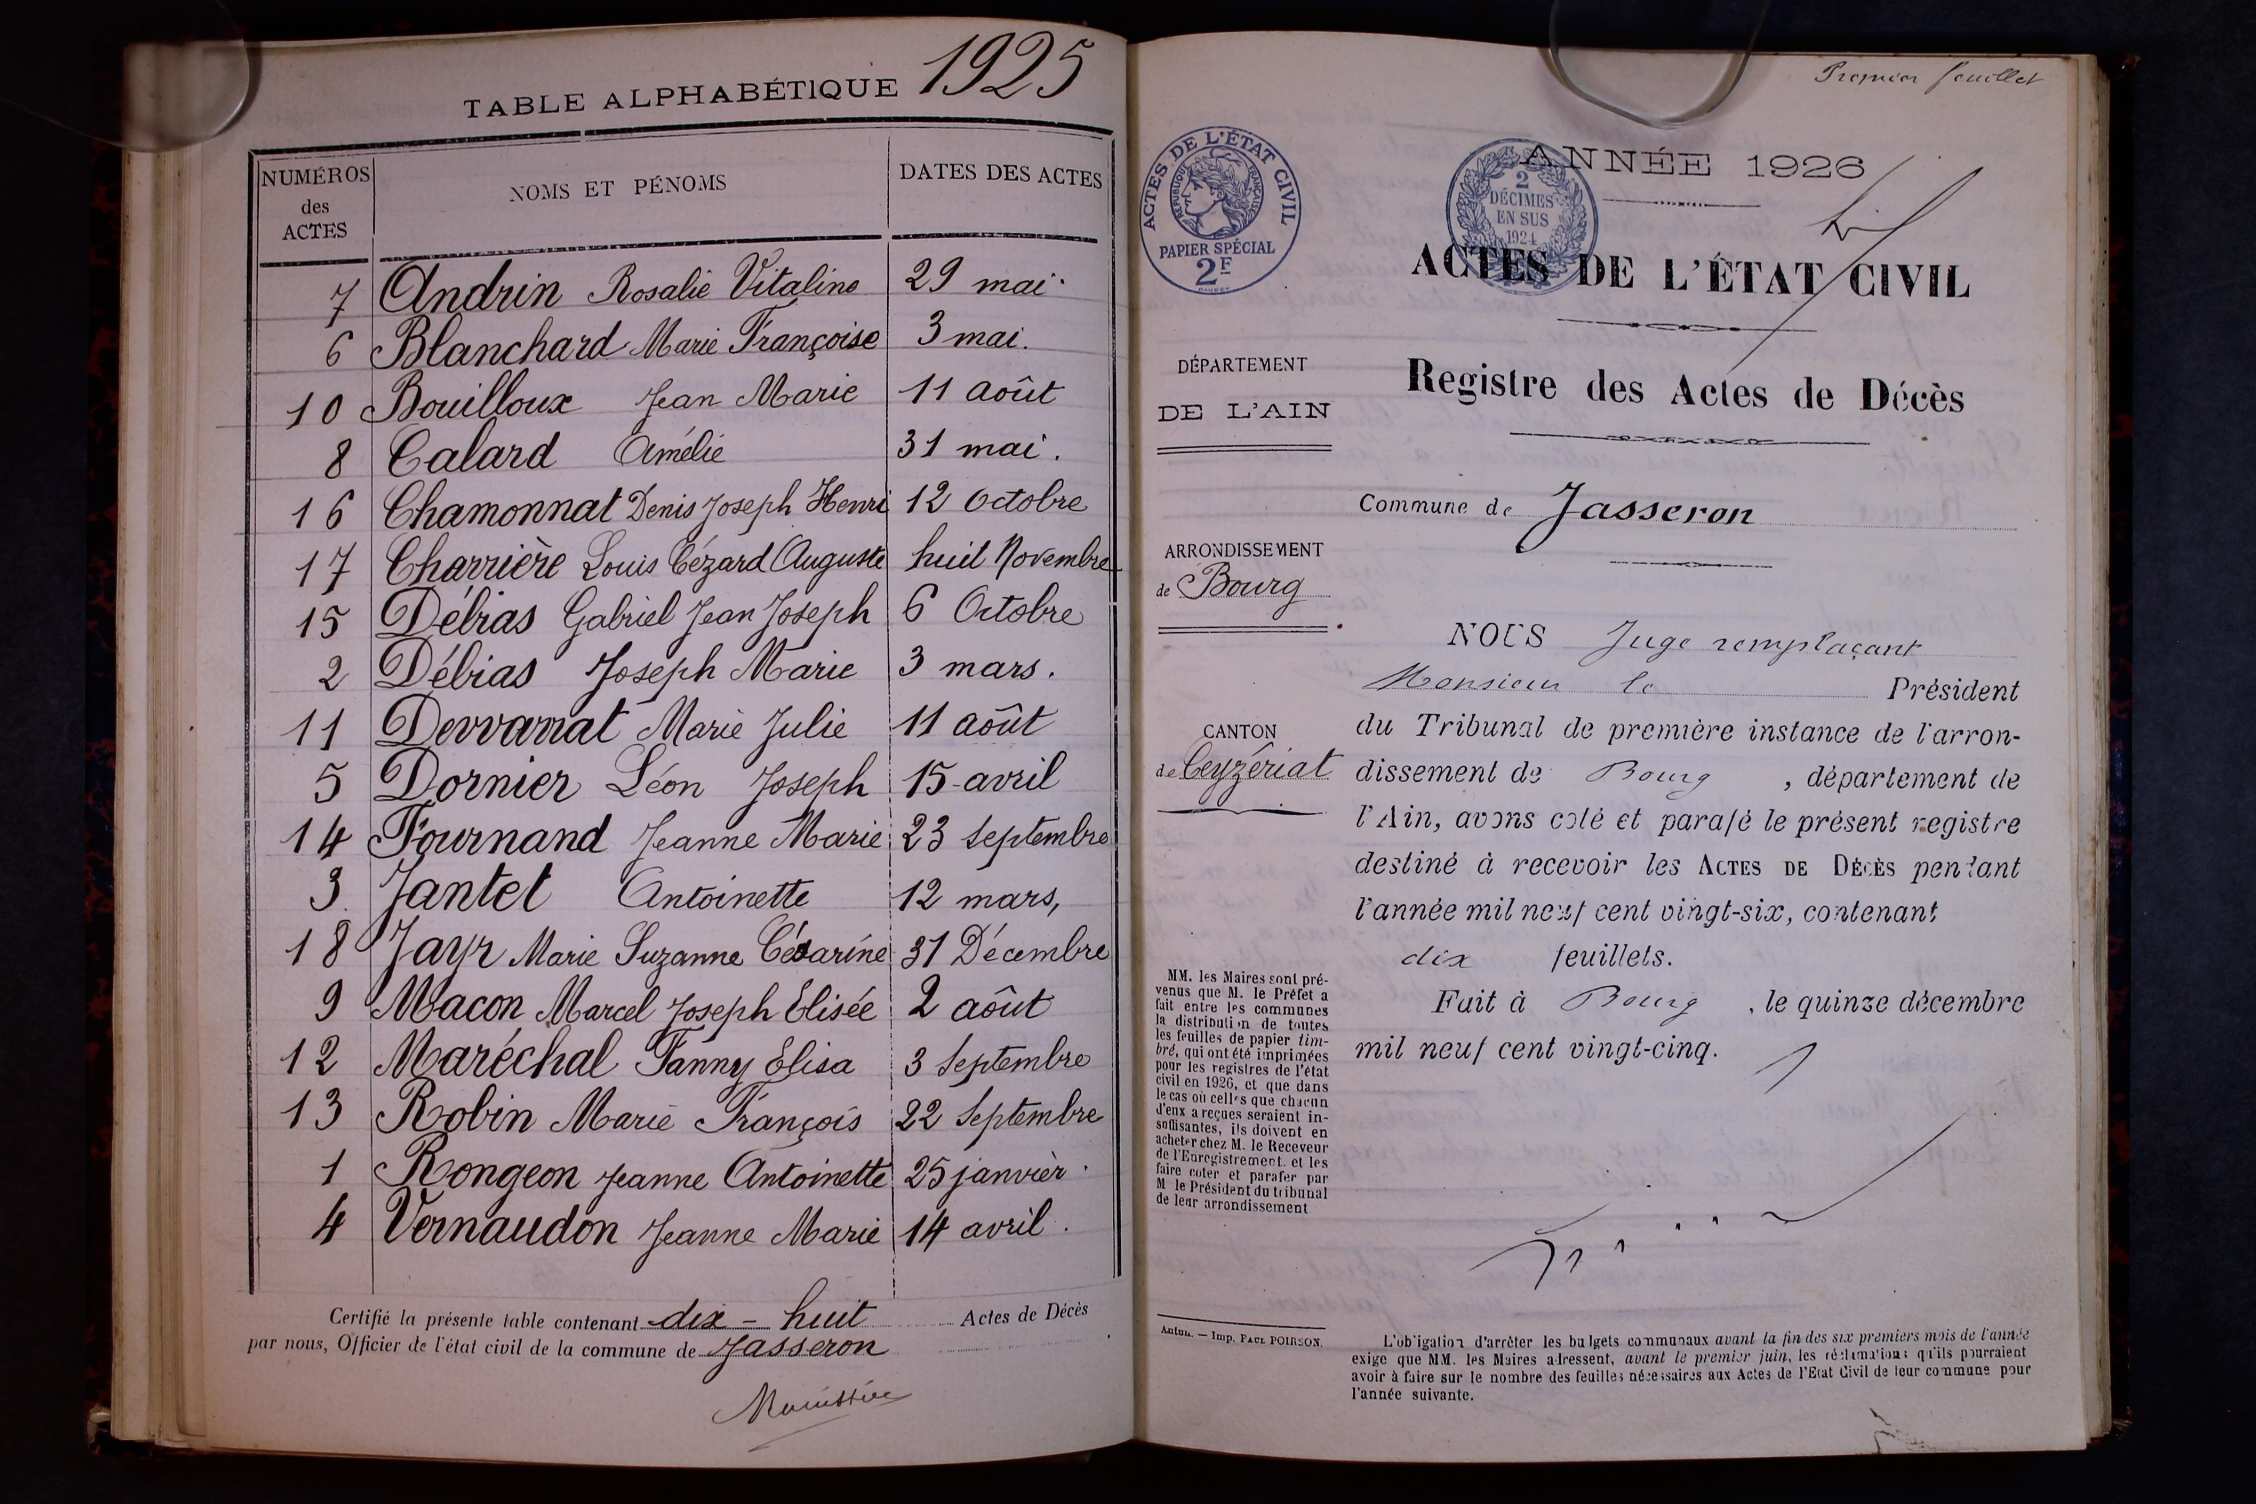 TABLE ALPHABÉTIQUE 1925
NUMÉROS des ACTES NOMS ET PÉNOMS DATES DES ACTES
7 Andrin Rosalie Vitaline 29 mai
6 Blanchard Marie Françoise 3 mai.
10 Bouilloux Jean Marie 11 août
8 Calard Amélie 31 mai.
16 Chamonnat Denis Joseph Henri 12 Octobre
17 Charrière Louis Cézard Auguste huit Novembre
15 Débias Gabriel Jean Joseph 6 Octobre
2 Débias Joseph Marie 3 mars.
11 Marie Julie 11 août
5 Dornier Léon Joseph 15 avril
14 Fournand Jeanne Marie 23 Septembre
3 Jantet Antoinette 12 mars,
18 Jayr Marie Suzanne Césarine 31 Décembre
9 Macon Marcel Joseph Elisée 2 août
12 Maréchal Fanny Elisa 3 Septembre
13 Robin Marie François 22 Septembre
1 Rongeon Jeanne Antoinette 25 janvièr
4 Vernaudon Jeanne Marie 14 avril.
Certifié la présente table contenant dix-huit Actes de Décès
par nous, Officier de l'état civil de la commune de Jasseron
Premier feuillet
ACTES DE L'ÉTAT CIVIL
RÉPUBLIQUE FRANÇAISE
PAPIER SPÉCIAL
2F
2
DÉCIMES
EN SUS
1924
ANNÉE 1926
ACTES DE L'ÉTAT CIVIL
Registre des Actes de Décès
DÉPARTEMENT
DE L'AIN
ARRONDISSEMENT
de Bourg
CANTON
de Ceyzériat
MM. les Maires sont pré-
venus que M. le Préfet a
fait entre les communes
la distribution de toutes
les feuilles de papier tim-
bré, qui ont été imprimées
pour les registres de l'état
civil en 1926, et que dans
le cas où celles que chacun
d'eux a reçues seraient in-
suffisantes, ils doivent en
acheter chez M. le Receveur
de l'Enregistrement. et les
faire coter et parafer par
M le Président du tribunal
de leur arrondissement
Autun. — Imp. PAUL POIRSON.
Commune de Jasseron
NOUS Juge remplaçant
Monsieur le Président
du Tribunal de première instance de l'arron-
dissement de Bourg, département de
l'Ain, avons coté et parafé le présent registre
destiné à recevoir les ACTES DE DÉCÈS pendant
l'année mil neuf cent vingt-six, contenant
dix feuillets.
Fait à Bourg, le quinze décembre
mil neuf cent vingt-cinq.
L'obligation d'arrêter les budgets communaux avant la fin des six premiers mois de l'année
exige que MM. les Maires adressent, avant le premier juin, les réclamations qu'ils pourraient
avoir à faire sur le nombre des feuilles nécessaires aux Actes de l'Etat Civil de leur commune pour
l'année suivante.